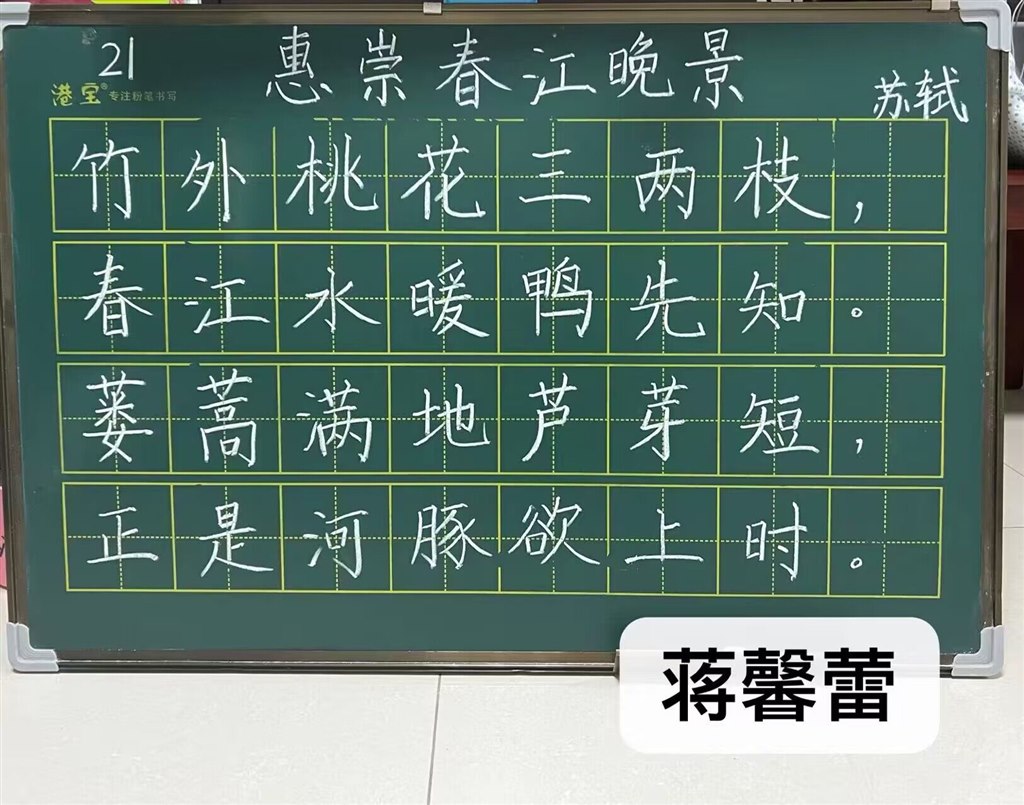 21
惠崇春江晚景
港宝®专注粉笔书写
苏轼
竹外桃花三两枝，
春江水暖鸭先知。
蒌蒿满地芦芽短，
正是河豚欲上时。
蒋馨蕾